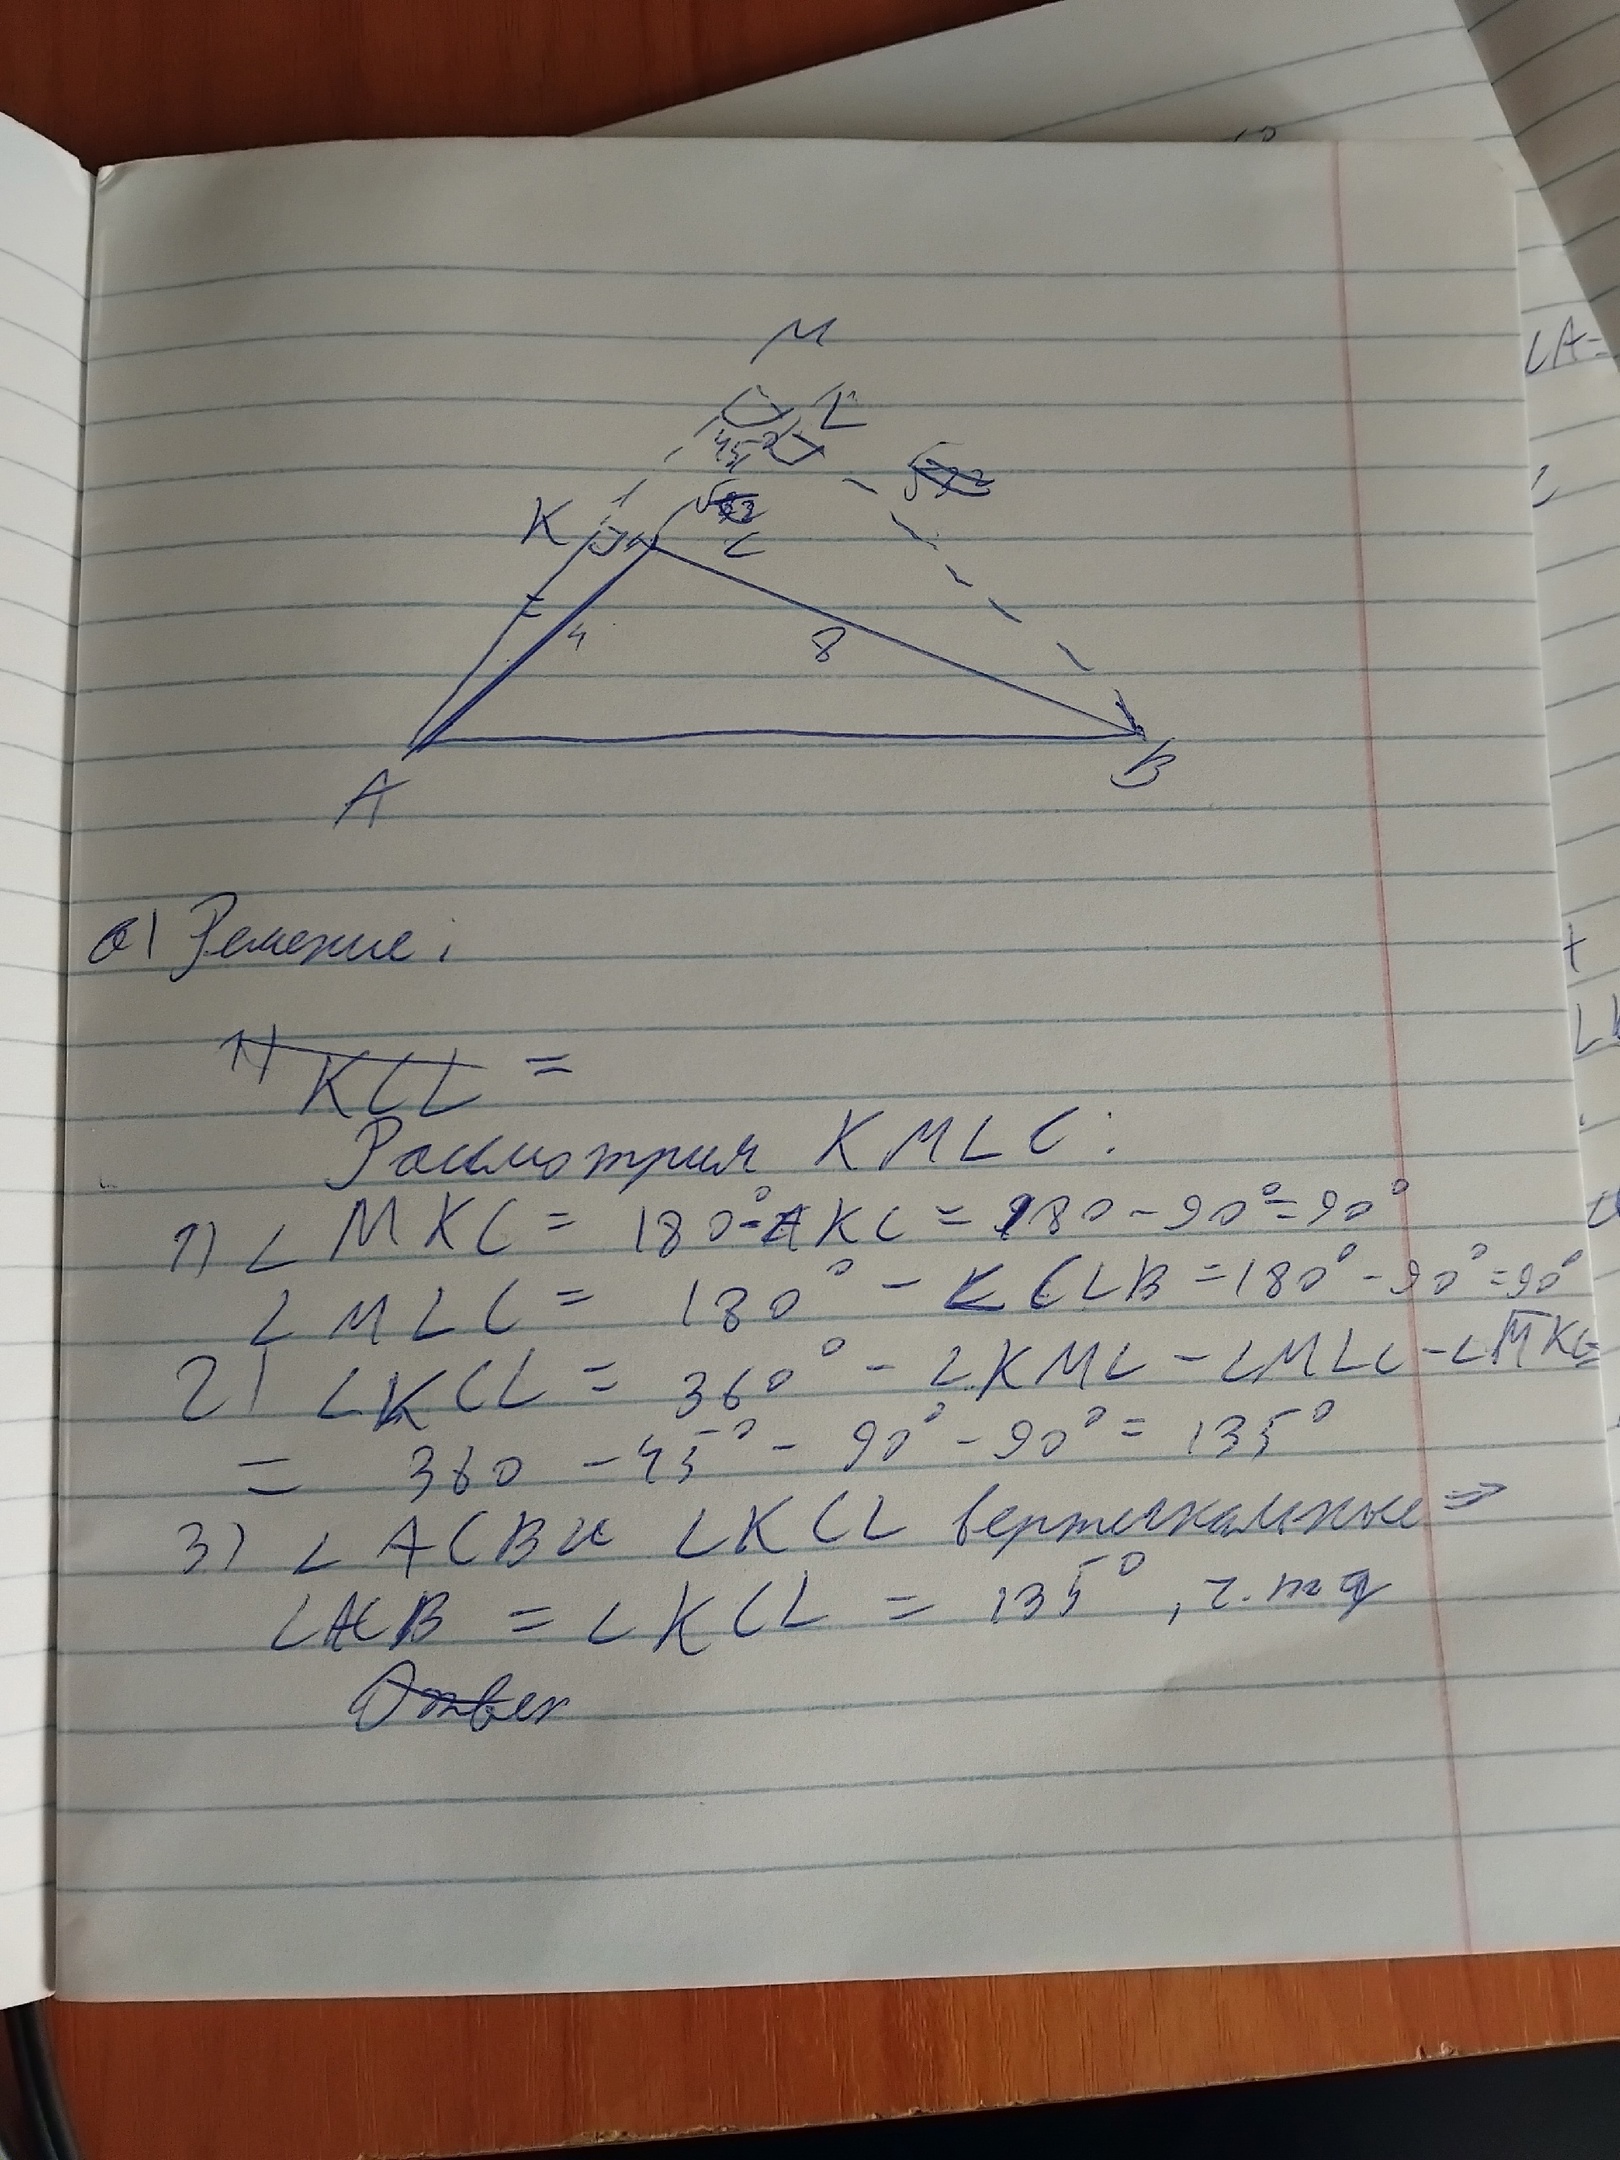 M
L
45°
K
C
4
8
A
B
а) Решение:
1) KCL =
Рассмотрим KMLC:
1) ∠ MKC = 180°-AKC = 180 - 90° = 90°
∠ MLC = 180° - ∠ CLB = 180° - 90° = 90°
2) ∠KCL = 360° - ∠KML - ∠MLC - ∠MKC =
= 360 - 45° - 90° - 90° = 135°
3) ∠ ACB и ∠KCL вертикальные ⇒
∠ACB = ∠KCL = 135°, ч.тд
Ответ
∠A=